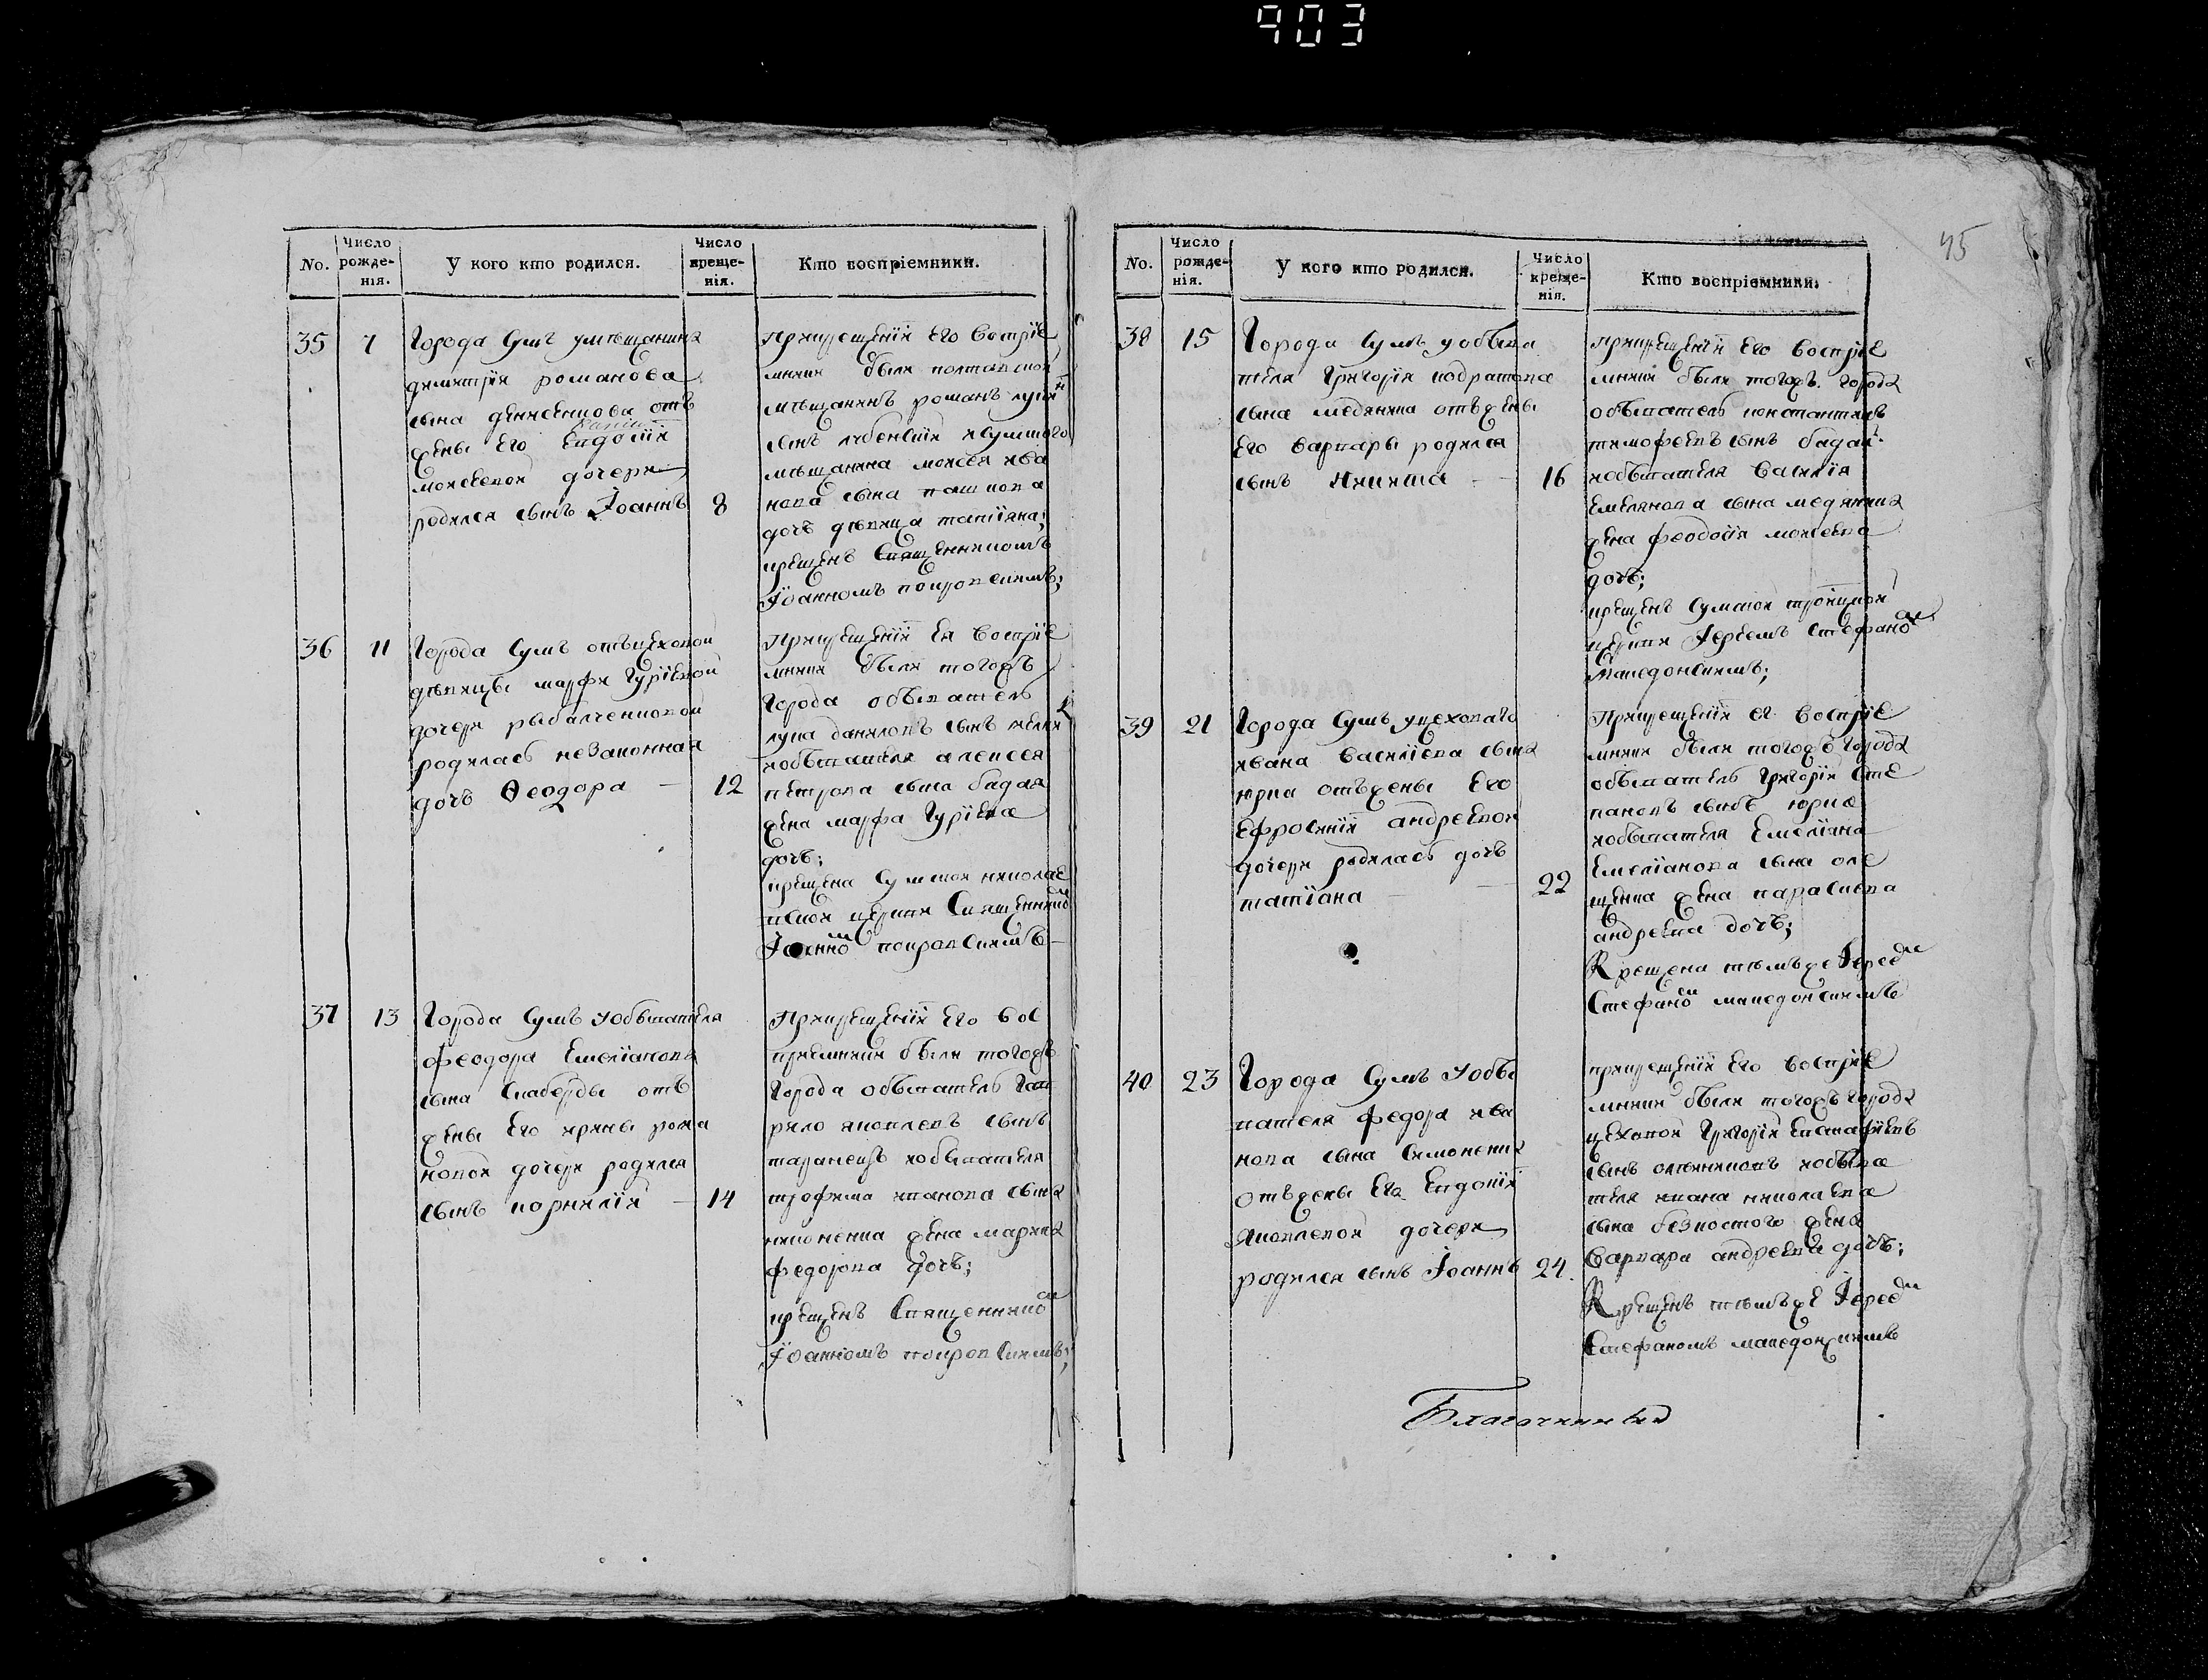 903
45
No.
Число рожде-нія.
У кого кто родился.
Число креще-нія.
Кто воспріемники.
35
7
Города Сумъ умѣщанина
димитрія романова
сына денисенкова отъ
жены Его Евдокіи
моисеевой дочери
родился сынъ Іоаннъ
8
При крещеніи Его Воспріе
мники были полтавской
мѣщанинъ романъ
сынъ исумского
мѣщанина моисея ива
нова сына пашкова
дочь дѣвица татіяна;
крещенъ Священникомъ
Іоанномъ покровскимъ;
36
11
Города Сумъ отъ цеховой
дѣвицы марфи Гуріевой
дочери рыбалченковой
родилась незаконная
дочь Ѳеодора —
12
При крещеніи Ея Воспріе
мники были тогожъ
Города обыватель
лука даниловъ сынъ
иобывателя алексея
петрова сына бадая
жена марфа Гуріева
дочь;
крещена Сумской николае
вской церкви Священнико м
Іоанно м покровскимъ —
37
13
Города Сумъ уобывателя
феодора Емеліанова
сына Скабеуды отъ
жены Его ирины рома
новой дочери родился
сынъ корнилій —
14
При крещеніи Его Вос
пріемники были тогожъ
Города обыватель Гав
рило яковлевъ сынъ
таранецъ иобывателя
трофима иванова сына
никоненка жена марина
федорова дочь;
крещенъ Священнико м
Іоанномъ покровскимъ;
No.
Число рожде-нія.
У кого кто родился.
Число креще-нія.
Кто воспріемники.
38
15
Города Сумъ уобыва
теля Григорія кодратова
сына медяника отъ жены
Его Варвары родился
сынъ Никита —
16
При крещеніи Его Воспріе
мники были тогожъ города
обыватель константинъ
тимофеевъ сынъ бадай
иобывателя Василія
Емелянова сына медяника
жена феодосія моисеева
дочь;
крещенъ Сумской троицкой
церкви Іереемъ Стефано м
македонскимъ;
39
21
Города Сумъ уцеховаго
ивана Василіева сына
юрка отъ жены Его
Ефросиніи андреевой
дочери родилась дочь
татіана —
22
При крещеніи Ег Воспріе
мники были тогожъ города
обыватель Григорій Сте
пановъ сынъ юрка
иобывателя Емеліана
Емеліанова сына оле
щенка жена параскева
андреева дочь;
Крещена тѣмъже Іерее м
Стефано м македонскимъ
40
23
Города Сумъ уобы
вателя федора ива
нова сына Симоненка
отъ жены Его Евдокіи
яковлевой дочери
родился сынъ Іоаннъ
24.
При крещеніи Его Воспріе
мники были тогожъ города
цеховой Григорій Евстафіевъ
сынъ иобыва
теля ивана николаева
сына безкостого жена
Варвара андреева дочь;
Крещенъ тѣмъже Іерее м
Стефаномъ македонскимъ
Благочинный